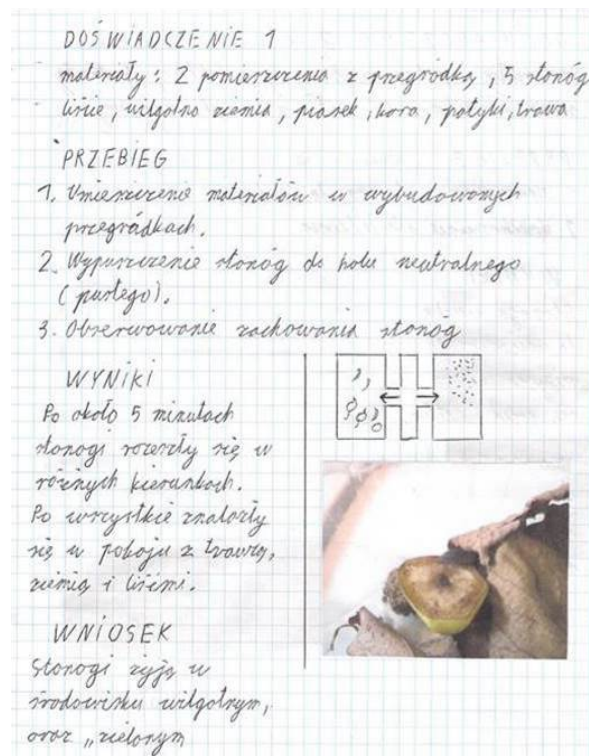 DOŚWIADCZENIE 1
materiały: 2 pomieszczenia z przegródką, 5 stonóg
liście, wilgotna ziemia, piasek, kora, patyki, trawa
PRZEBIEG
1. Umieszczenie materiałów w wybudowanych
przegródkach.
2. Wypuszczenie stonóg do holu neutralnego
(pustego).
3. Obserwowanie zachowania stonóg
WYNIKI
Po około 5 minutach
stonogi rozeszły się w
różnych kierunkach.
Po wszystkie znalazły
się w pokoju z trawą,
ziemią i liśćmi.
WNIOSEK
Stonogi żyją w
środowisku wilgotnym,
oraz „zielonym